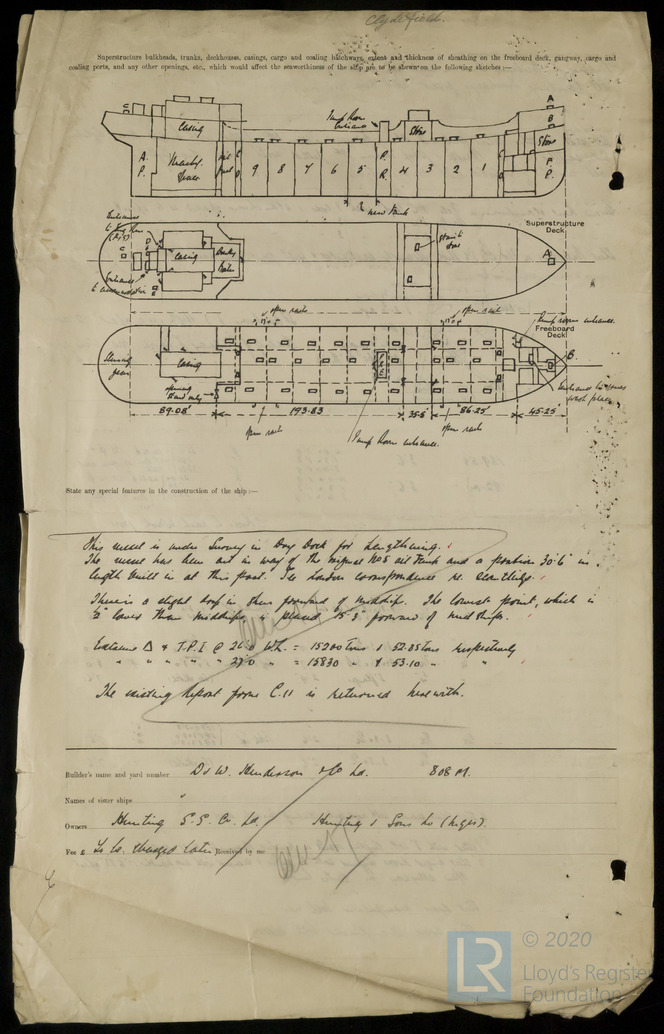 Clydefield.
Superstructure bulkheads, trunks, deckhouses, casings, cargo and coaling hatchways, extent and thickness of sheathing on the freeboard deck, gangway, cargo and
coaling ports, and any other openings, etc., which would affect the seaworthiness of the ship are to be shown on the following sketches :—
C
Casing
Pump Room
Entrance
Store
A
B
Store
A.
P.
Machy.
Space
9 8 7 6 5
P.
R.
4 3 2 1
F.
P.
New Tank
Superstructure
Deck
Entrance
Casing
A
open rails
open rails
Pump room entrance.
Freeboard
Deck
B.
Steering
gear
Casing
89.08' 193.83 35.5' 86.25' 45.25
open rails
Pump Room entrance.
open rails
State any special features in the construction of the ship :—
This vessel is under Survey in Dry Dock for Lengthening.
The vessel has been cut in way of the original No 5 oil tank and a portion 30'.6" in
length built in at this part. See London correspondence re. Scantlings.
There is a slight drop in sheer forward of midship. The lowest point, which is
lower than midships, is placed 15'.3" forward of midships.
Extreme Δ & T.P.I @ 26'.0 W.L. = 15200 tons & 52.85 tons respectively
" " " " " 27'.0 " = 15830 " & 53.10 " "
The existing Report form C.11 is returned herewith.
Builder's name and yard number D & W. Henderson & Co Ld. 808 M.
Names of sister ships "
Owners Hunting S.S. Co. Ld. Hunting & Sons Ld (Mgrs).
Fee £ charged later Received by me
LR © 2020
Lloyd's Register
Foundation